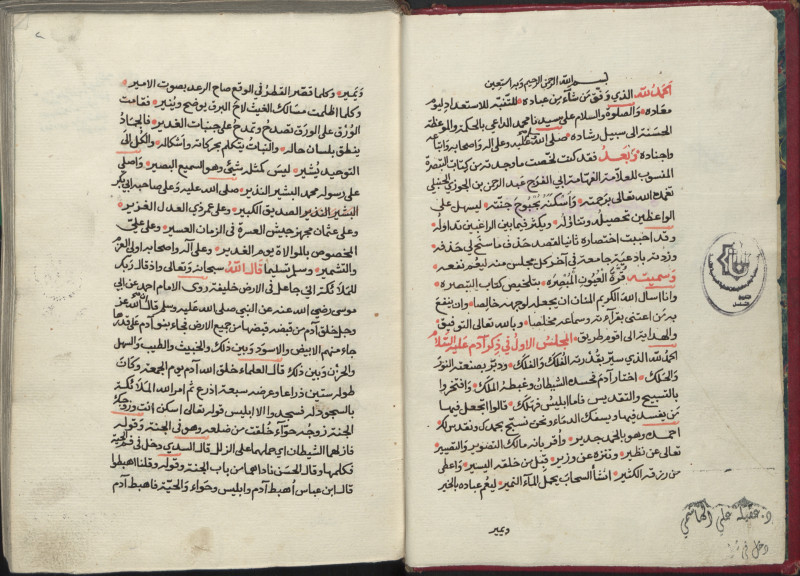 بسم الله الرحمن الرحيم وبه نستعين
الحمد لله الذي وفق من شاء من عباده للتنبه للاستعداد ليوم
معاده والصلوة والسلام على سيدنا محمد الداعي بالحكمة والموعظة
الحسنة الى سبيل رشاده صلى الله عليه وعلى اله واصحابه واتباعه
واجناده وبعد فقد كنت لخصت ما وجدته من كتاب التبصرة
المنسوب للعلامة الفهامة ابي الفرج عبد الرحمن بن الجوزي الحنبلي
تغمده الله تعالى برحمته واسكنه بحبوح جنته ليسهل على
الواعظين تحصيله وتناوله ويكثر فيما بين الراغبين تداوله
وقد احببت اختصاره ثانيا لقصد حذف ما سنح لي حذفه
وزدته بادعية جامعة في آخر كل مجلس منه ليعم نفعه
وسميته قرة العيون المبصرة بتلخيص كتاب التبصرة
وانا اسال الله الكريم المنان ان يجعله لوجهه خالصا وان ينفع
به من اعتنى بقرآءته وسماعه مخلصا وبالله تعالى التوفيق
والهداية الى اقوم طريق المجلس الاول في ذكر آدم عليه السلام
الحمد لله الذي سير بقدرته الفلك والفلك ودبر بصنعته النور
والحلك اختار آدم فحسده الشيطان وغبطه الملك وافتخروا
بالتسبيح والتقديس فاما ابليس فهلك قالوا اتجعل فيها
من يفسد فيها ويسفك الدماء ونحن نسبح بحمدك ونقدس لك
احمده وهو بالحمد جدير واقر بانه مالك التصوير والتغيير
تعالى عن نظير وتنزه عن وزير قبل من خلقه اليسير واعطى
من رزقه الكثير انشأ السحاب يحمل الماء النمير ليعم عباده بالخير
ويمير
د. عقيلة علي الهاشمي
ويمير وكلما قصر القطر في الوقع صاح الرعد بصوت الامير
وكلما اظلمت مسالك الغيث لاح البرق يوضح وينير فقامت
الورق على الورق تصدح وتمدح على جنبات الغدير فالجماد
ينطق بلسان حاله والنبات يتكلم بحركاته واشكاله والكل الى
التوحيد يشير ليس كمثله شيء وهو السميع البصير واصلي
على رسوله محمد البشير النذير صلى الله عليه وعلى صاحبه ابي بكر
الصديق الكبير وعلى عمر ذي العدل الغزير
وعلى عثمان مجهز جيش العسرة في الزمان العسير وعلى علي
المخصوص بالموالاة يوم الغدير وعلى آله واصحابه
والتشمير وسلم تسليما قال الله سبحانه وتعالى واذ قال ربك
للملائكة اني جاعل في الارض خليفة روى الامام احمد عن ابي
موسى رضي الله عنه عن النبي صلى الله عليه وسلم قال ان الله عز
وجل خلق آدم من قبضة قبضها من جميع الارض فجاء بنو آدم على قدرها
جاء منهم الابيض والاسود وبين ذلك والخبيث والطيب والسهل
والحزن وبين ذلك قال العلماء خلق الله آدم يوم الجمعة وكان
طوله ستين ذراعا وعرضه سبعة اذرع ثم امر الله الملائكة
بالسجود له فسجدوا الا ابليس قوله تعالى اسكن انت وزوجك
الجنة زوجه حوآء خلقت من ضلعه وهو في الجنة وقوله
فازلهما الشيطان اي حملهما على الزلل قال السدي دخل في فم الحية
فكلمهما وقال الحسن ناداهما من باب الجنة وقوله وقلنا اهبطوا
قال ابن عباس أهبط آدم وابليس وحواء والحية فاهبط آدم